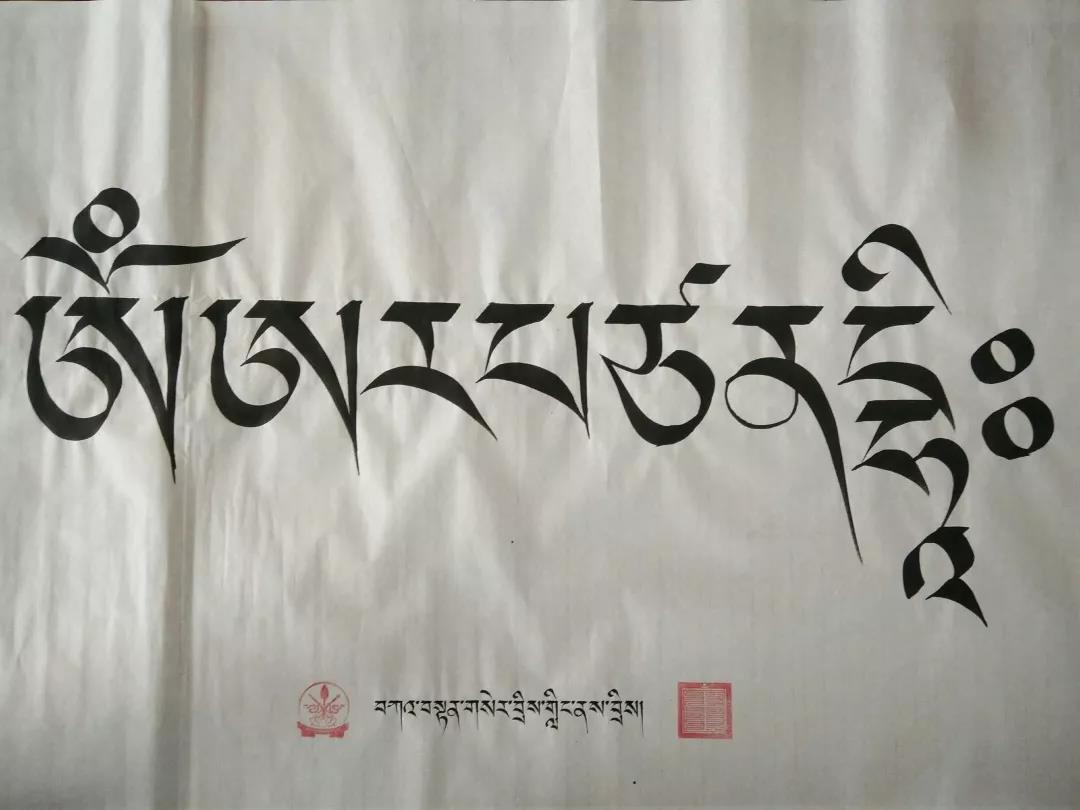 ཨོཾཨརཔཙནདྷཱིཿ
བཀའ་བསྟན་གསེར་བྲིས་གླིང་ནས་བྲིས།